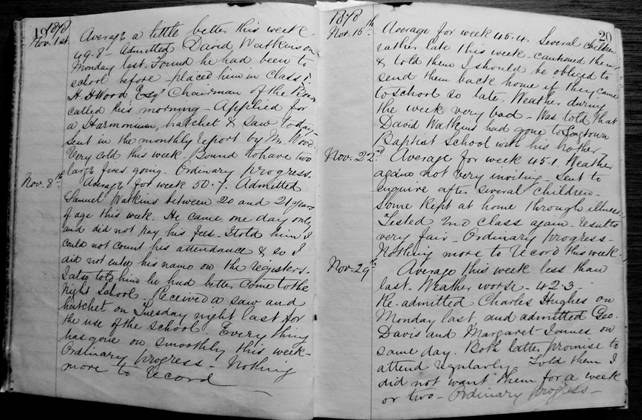 19
1878
Nov. 1st. Average a little better this week
49.8. Admitted David Watkins on
Monday last. Found he had been to
school before placed him in Class 1.
H. H. Wood Esqr. Chairman of the
called this morning - Applied for
a Harmonium, hatchet & Saw. Today
sent in the monthly report by Mr. Wood.
Very cold this week. Found to have two
large fires going. Ordinary progress.
Nov. 8th Average for week 50.7. Admitted
Samuel Watkins between 20 and 21 years
of age this week. He came one day only
and did not pay his fees. I told him I
could not count his attendance & so I
did not enter his name on the registers.
I also told him he had better come to the
night school. Received a saw and
hatchet on Tuesday night last for
the use of the school. Every thing
has gone on smoothly this week -
Ordinary progress - Nothing
more to record
1878
20
Nov. 15th Average for week 45.4. Several children
rather late this week - cautioned them
& told them I should be obliged to
send them back home if they came
to school so late. Weather during
the week very bad - Was told that
David Watkins had gone to Longtown
Baptist School with his brother.
Nov. 22nd Average for week 45.1. Weather
again not very inviting. Sent to
enquire after several children.
Some kept at home through illness.
Tested 2nd class again results
very fair - Ordinary progress -
Nothing more to record this week.
Nov. 29th Average this week less than
last. Weather worse - 42.3 -
Re-admitted Charles Hughes on
Monday last, and admitted Geo.
Davis and Margaret Innes on
same day. Both latter promise to
attend regularly. Told them I
did not want them for a week
or two - Ordinary progress -